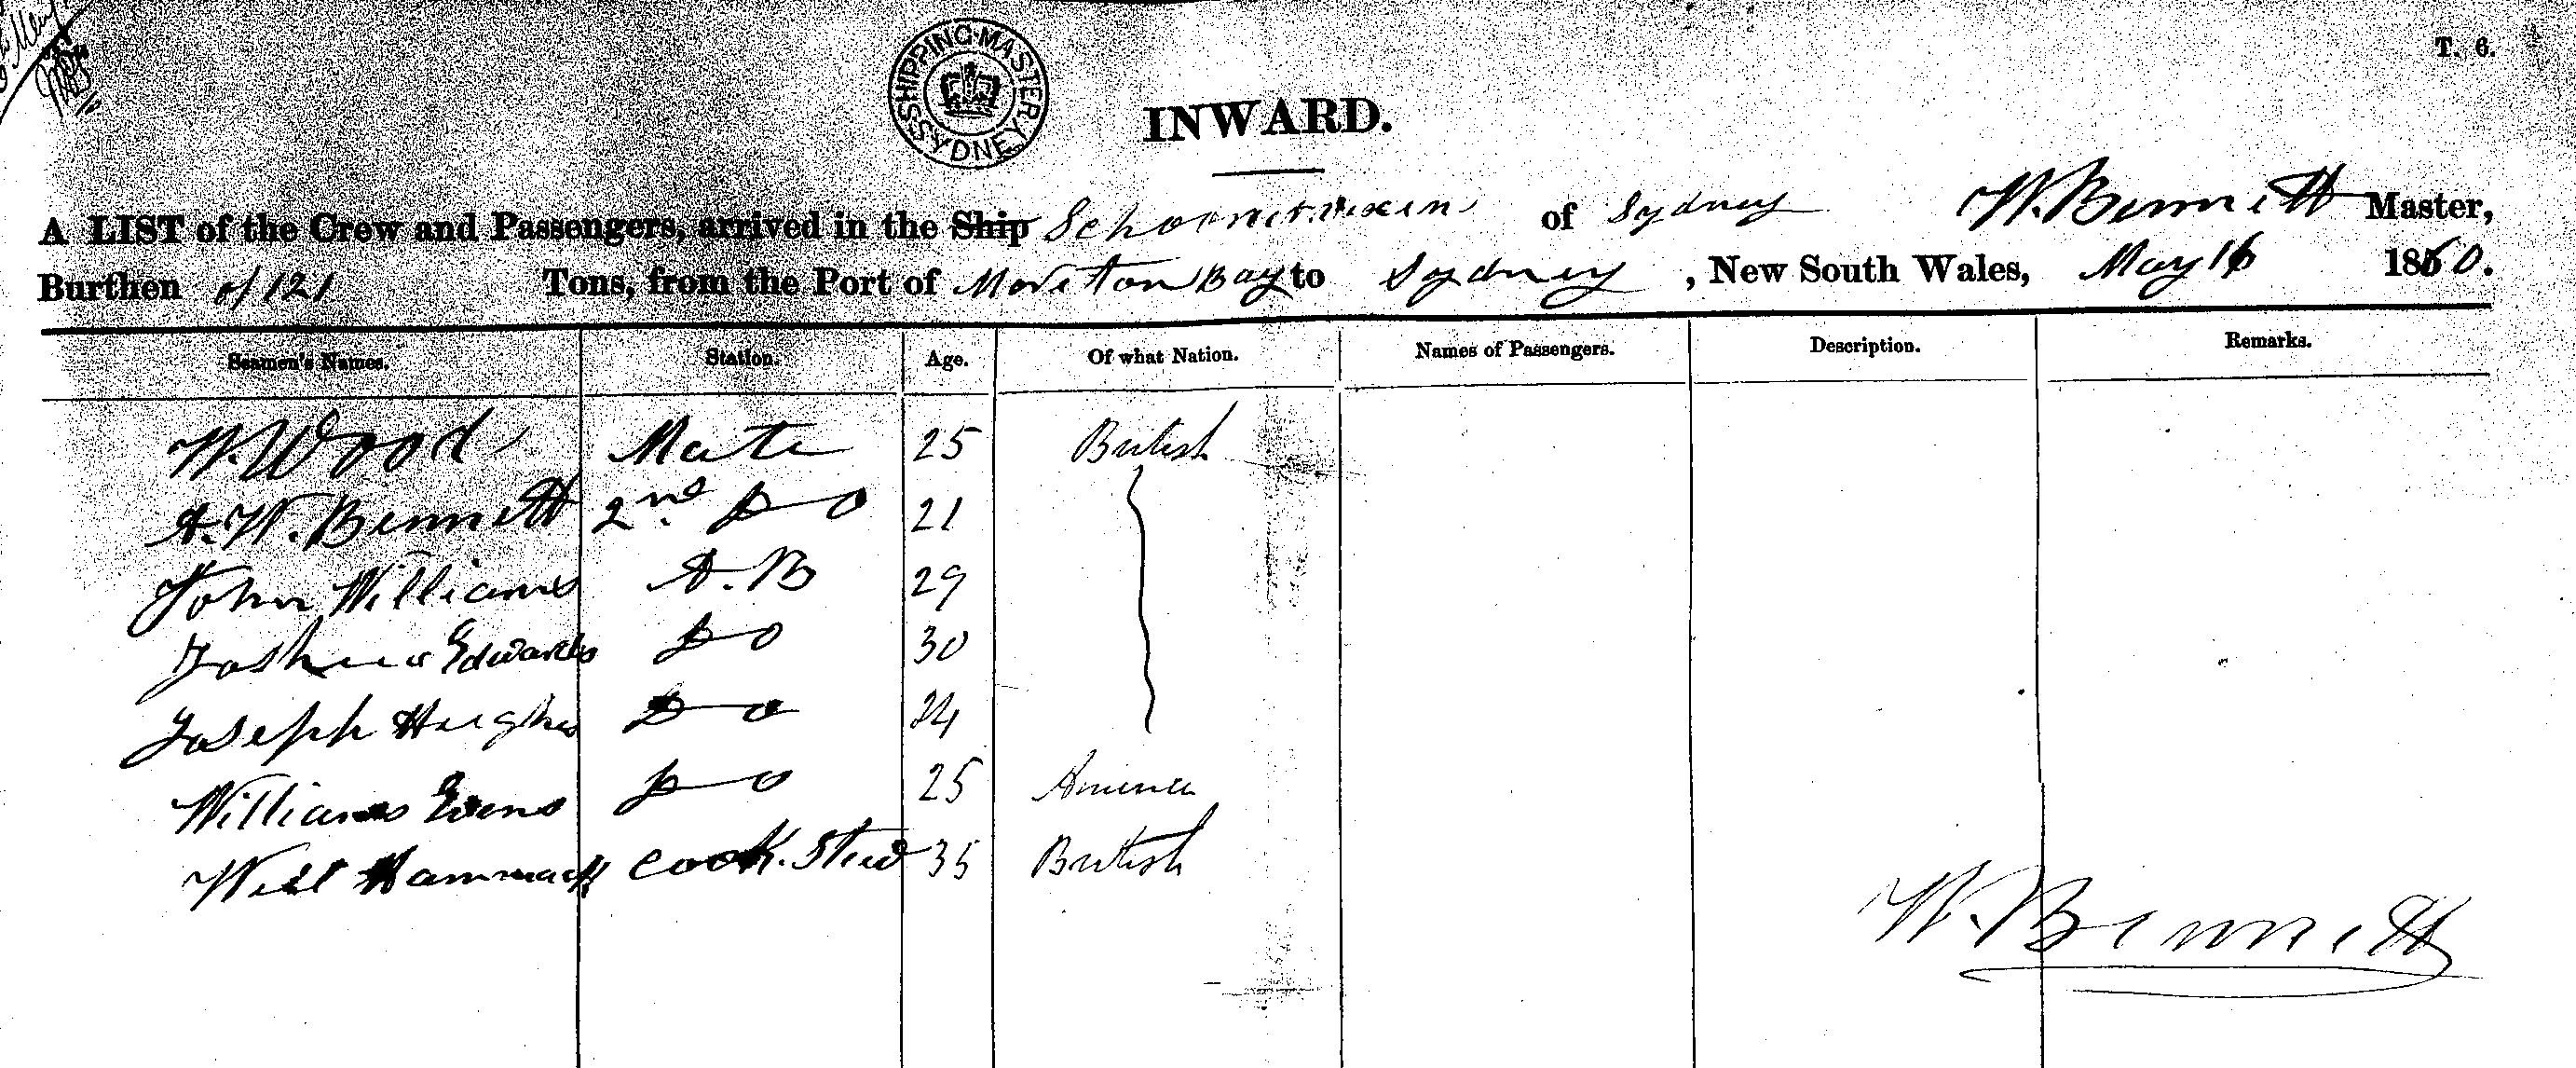 T. 6.
SHIPPING MASTER SYDNEY
INWARD.
A LIST of the Crew and Passengers, arrived in the Ship Schooner Vixen of Sydney W. Bennett Master,
Burthen of 121 Tons, from the Port of Moreton Bay to Sydney, New South Wales, May 16 1860.
Seamen's Names. Station. Age. Of what Nation. Names of Passengers. Description. Remarks.
W. Wood Mate 25 British
A. W. Bennett 2nd Do 21
John Williams A. B 29
Joshua Edwards Do 30
Joseph Hughes Do 24
Williams Evens Do 25 America
Will Cook. Stew 35 British
W. Bennett